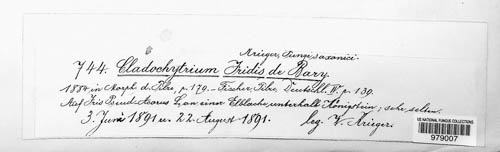 Krieger, Fungi saxonici
744. Cladochytrium Iridis de Bary.
1884 in Morph. d. Pilze, p. 179. – Fischer, Pilze Deutschl. IV. p. 139.
Auf Iris Pseud-Acorus L, an einer Elblache unterhalb Königstein; sehr selten.
3. Juni 1891 u. 22. August 1891. leg. W. Krieger.
US NATIONAL FUNGUS COLLECTIONS
979007